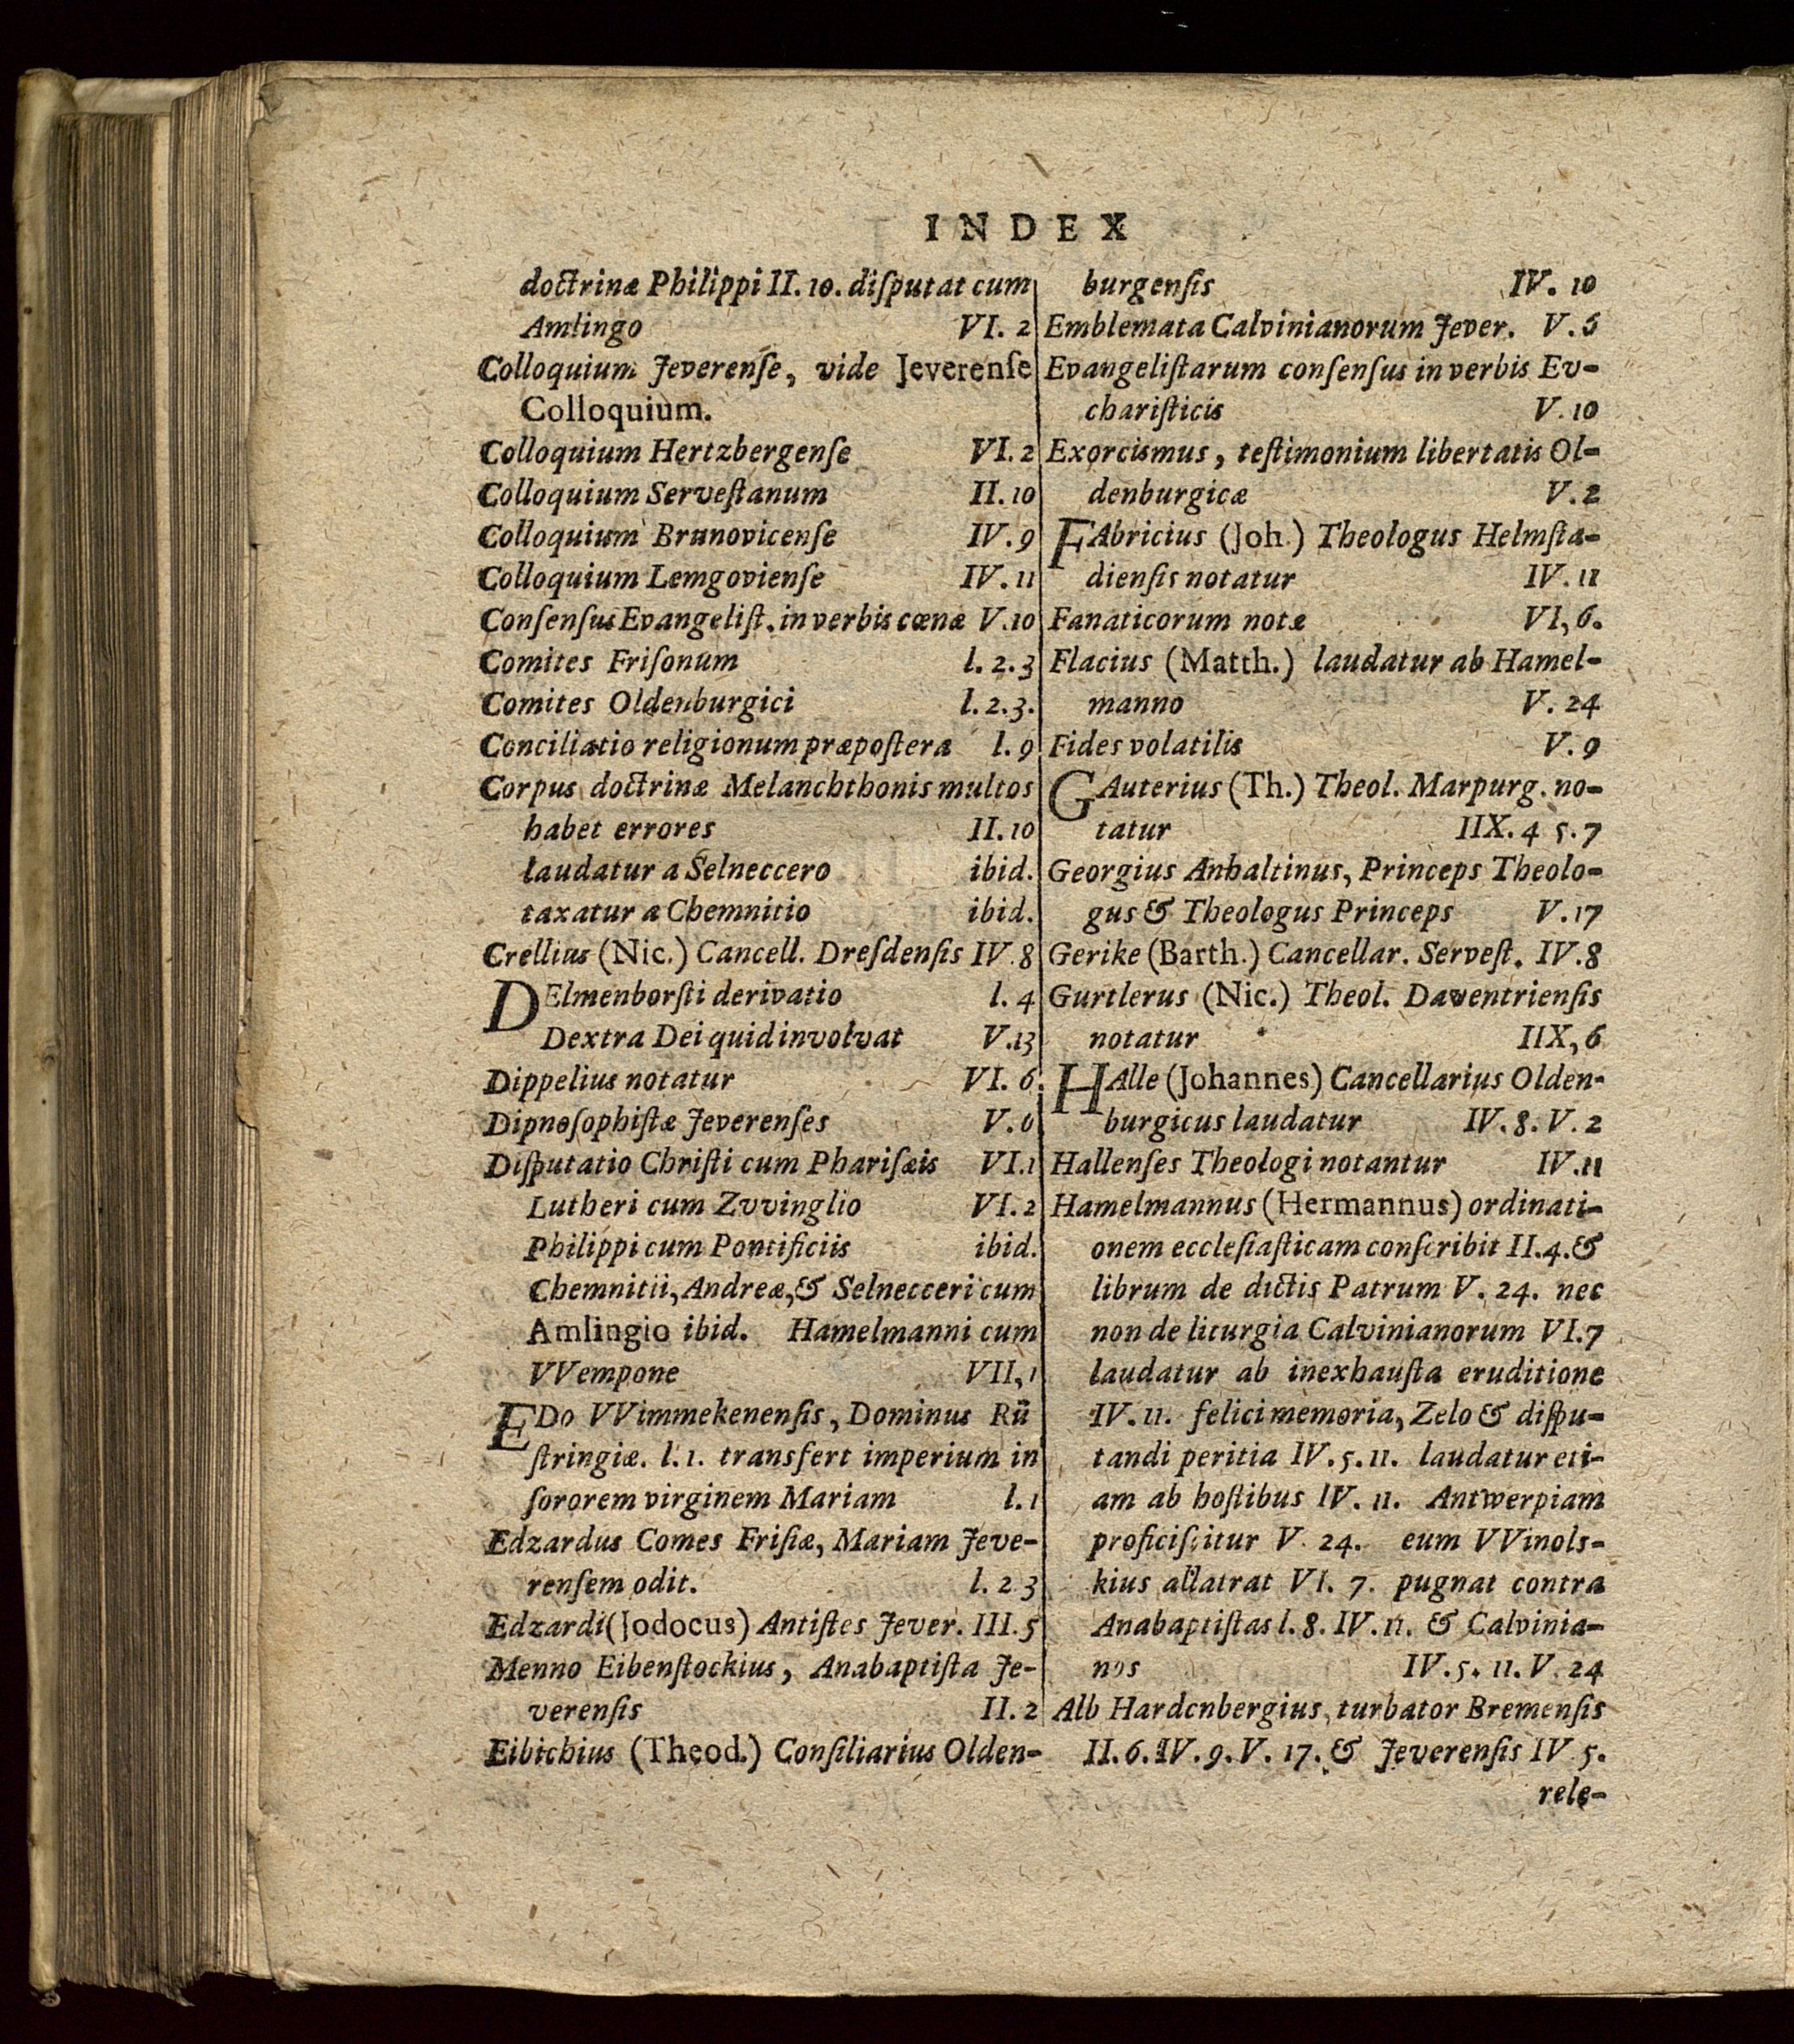 INDEX
doctrinæ Philippi II. 10. diſputat cum
Amlingo VI. 2
Colloquium Jeverenſe, vide Jeverenſe
Colloquium.
Colloquium Hertzbergenſe VI. 2
Colloquium Serveſtanum II. 10
Colloquium Brunovicenſe IV. 9
Colloquium Lemgovienſe IV. 11
Conſenſus Evangeliſt. in verbis cœnæ V. 10
Comites Friſonum l. 2. 3
Comites Oldenburgici l. 2. 3.
Conciliatio religionum præpoſtera l. 9
Corpus doctrinæ Melanchthonis multos
habet errores II. 10
laudatur a Selneccero ibid.
taxatur a Chemnitio ibid.
Crellius (Nic.) Cancell. Dreſdenſis IV. 8
DElmenhorſti derivatio l. 4
Dextra Dei quid involvat V. 13
Dippelius notatur VI. 6.
Dipnoſophiſtæ Jeverenſes V. 6
Diſputatio Chriſti cum Phariſæis VI. 1
Lutheri cum Zvvinglio VI. 2
Philippi cum Pontificiis ibid.
Chemnitii, Andreæ, & Selnecceri cum
Amlingio ibid. Hamelmanni cum
VVempone VII, 1
EDo VVimmekenenſis, Dominus Rü
ſtringiæ. l. 1. transfert imperium in
ſororem virginem Mariam l. 1
Edzardus Comes Friſiæ, Mariam Jeve-
renſem odit. l. 2 3
Edzardi (Jodocus) Antiſtes Jever. III. 5
Menno Eibenſtockius, Anabaptiſta Je-
verenſis II. 2
Eibichius (Theod.) Conſiliarius Olden-
burgenſis IV. 10
Emblemata Calvinianorum Jever. V. 6
Evangeliſtarum conſenſus in verbis Ev-
chariſticis V. 10
Exorcismus, teſtimonium libertatis Ol-
denburgicæ V. 2
FAbricius (Joh.) Theologus Helmſta-
dienſis notatur IV. 11
Fanaticorum notæ VI, 6.
Flacius (Matth.) laudatur ab Hamel-
manno V. 24
Fides volatilis V. 9
GAuterius (Th.) Theol. Marpurg. no-
tatur IIX. 4 5. 7
Georgius Anhaltinus, Princeps Theolo-
gus & Theologus Princeps V. 17
Gerike (Barth.) Cancellar. Serveſt. IV. 8
Gurtlerus (Nic.) Theol. Daventrienſis
notatur IIX, 6
HAlle (Johannes) Cancellarius Olden-
burgicus laudatur IV. 8. V. 2
Hallenſes Theologi notantur IV. 11
Hamelmannus (Hermannus) ordinati-
onem eccleſiaſticam conſcribit II. 4. &
librum de dictis Patrum V. 24. nec
non de liturgia Calvinianorum VI. 7
laudatur ab inexhauſta eruditione
IV. 11. felici memoria, Zelo & diſpu-
tandi peritia IV. 5. 11. laudatur eti-
am ab hoſtibus IV. 11. Antwerpiam
proficiſcitur V. 24. eum VVinols-
kius allatrat VI. 7. pugnat contra
Anabaptiſtas l. 8. IV. 11. & Calvinia-
nos IV. 5. 11. V. 24
Alb Hardenbergius, turbator Bremenſis
II. 6. IV. 9. V. 17. & Jeverenſis IV 5.
rele-